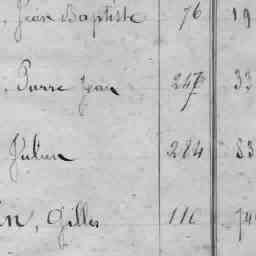 , Jean Baptiste 76 19
, Pierre Jean 247 33
Julien 284 83
in, Gilles 110 74